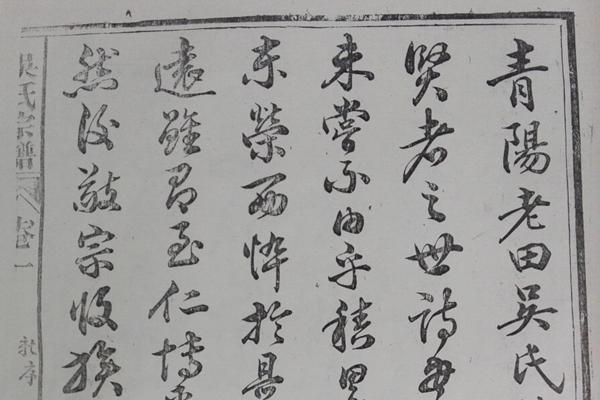 青陽老田吳氏
賢者之世詩
未嘗不由乎積累
榮而悴於
遠雖至仁博
然後敬宗收族
吳氏宗譜 卷一 序